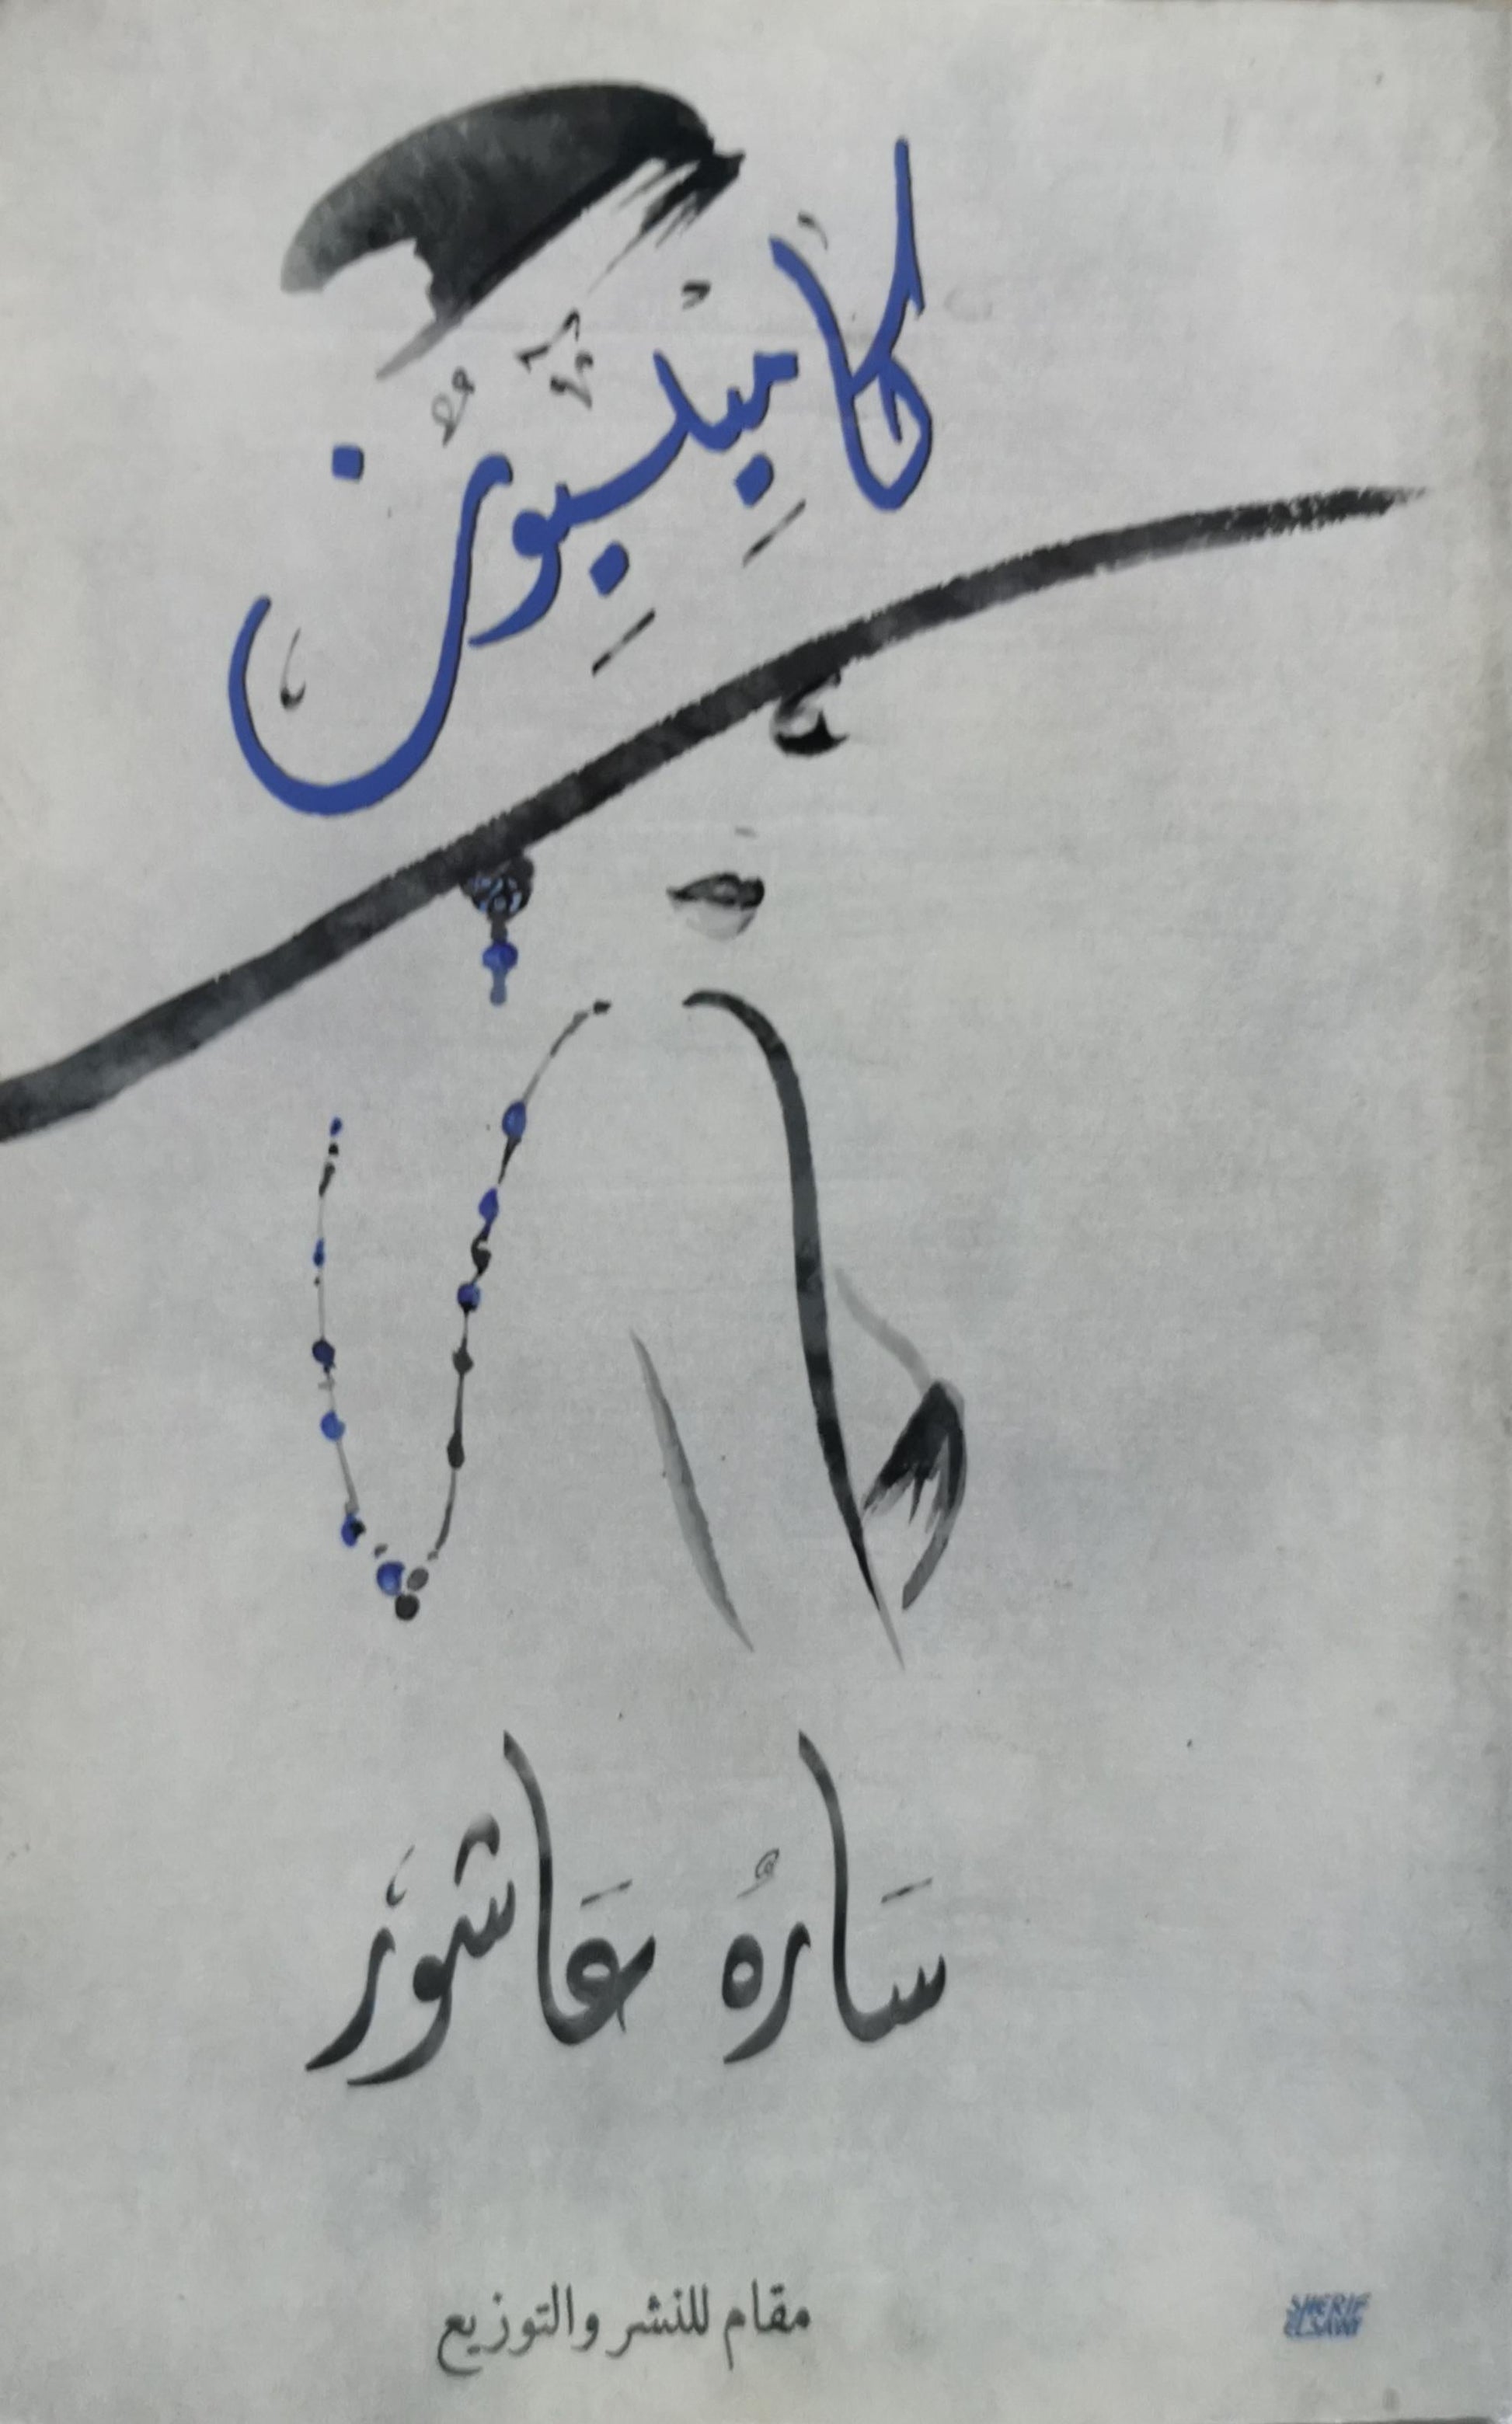 كاميليون
ساره عاشور
مقام للنشر والتوزيع
SHERIF